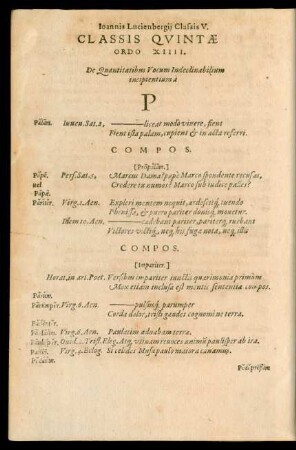 Ioannis Lucienbergij Classis V.
CLASSIS QVINTÆ
ORDO XIIII.
De Quantitatibus Vocum Indeclinabilium
incipientium à
P
Palàm. Iuuen. Sat. 2, liceat modò viuere, fient
Fient ista palam, cupient & in acta referri.
COMPOS.
[Própălàm.]
Păpè. Pers. Sat. 5, Marcus Dama! papè Marco spondente recusas,
vel Credere tu numos? Marco sub iudice palles?
Papæ.
Păriter. Virg. 1. Aen. Expleri mentem nequit, ardescitq́; tuendo
Phœnissa, & puero pariter donisq́; mouetur.
Idem 10. Aen. cædebant pariter, pariterq́; ruebant
Victores victiq́;, neq́; his fuga nota, neq́; illis
COMPOS.
[Impariter.]
Horat. in art. Poet. Versibus impariter iunctis querimonia primùm
Mox etiam inclusa est voti sententia compos.
Parùm.
Parùmper. Virg. 6. Aen. parumper
Corda dolor, tristi gaudes cognomine terra.
Paulàtim. Virg. 6. Aen. Paulatim adnabam terræ.
Paulisper. Ouid. 1. Trist. Eleg.
Paulò. Virg. 4. Eclog. Sicelides Musæ paulo maiora canamus.